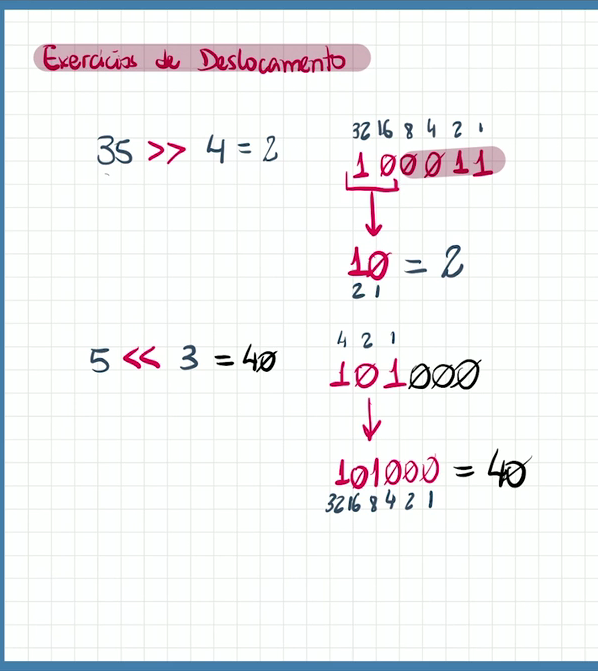 Exercícios de Deslocamento
32 16 8 4 2 1
35 >> 4 = 2
100011
10 = 2
2 1
4 2 1
5 << 3 = 40
101000
101000 = 40
32 16 8 4 2 1